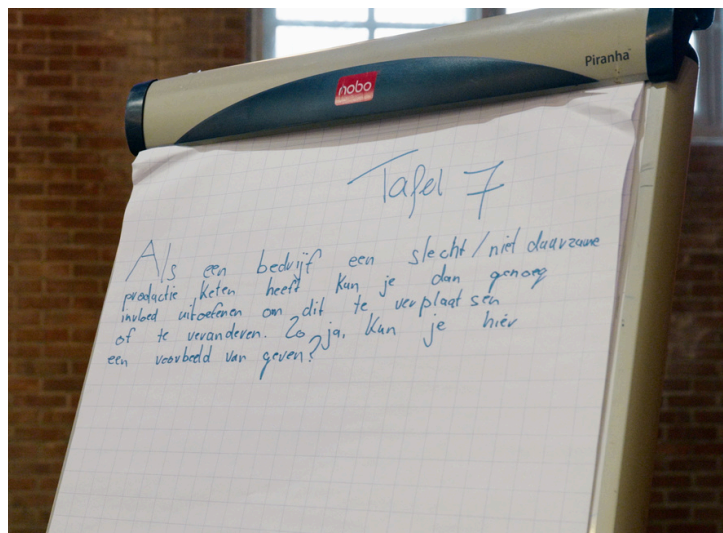 Piranha
nobo
Tafel 7
Als een bedrijf een slecht/niet duurzame
productie keten heeft kan je dan genoeg
invloed uitoefenen om dit te verplaatsen
of te veranderen. Zo ja, kan je hier
een voorbeeld van geven?